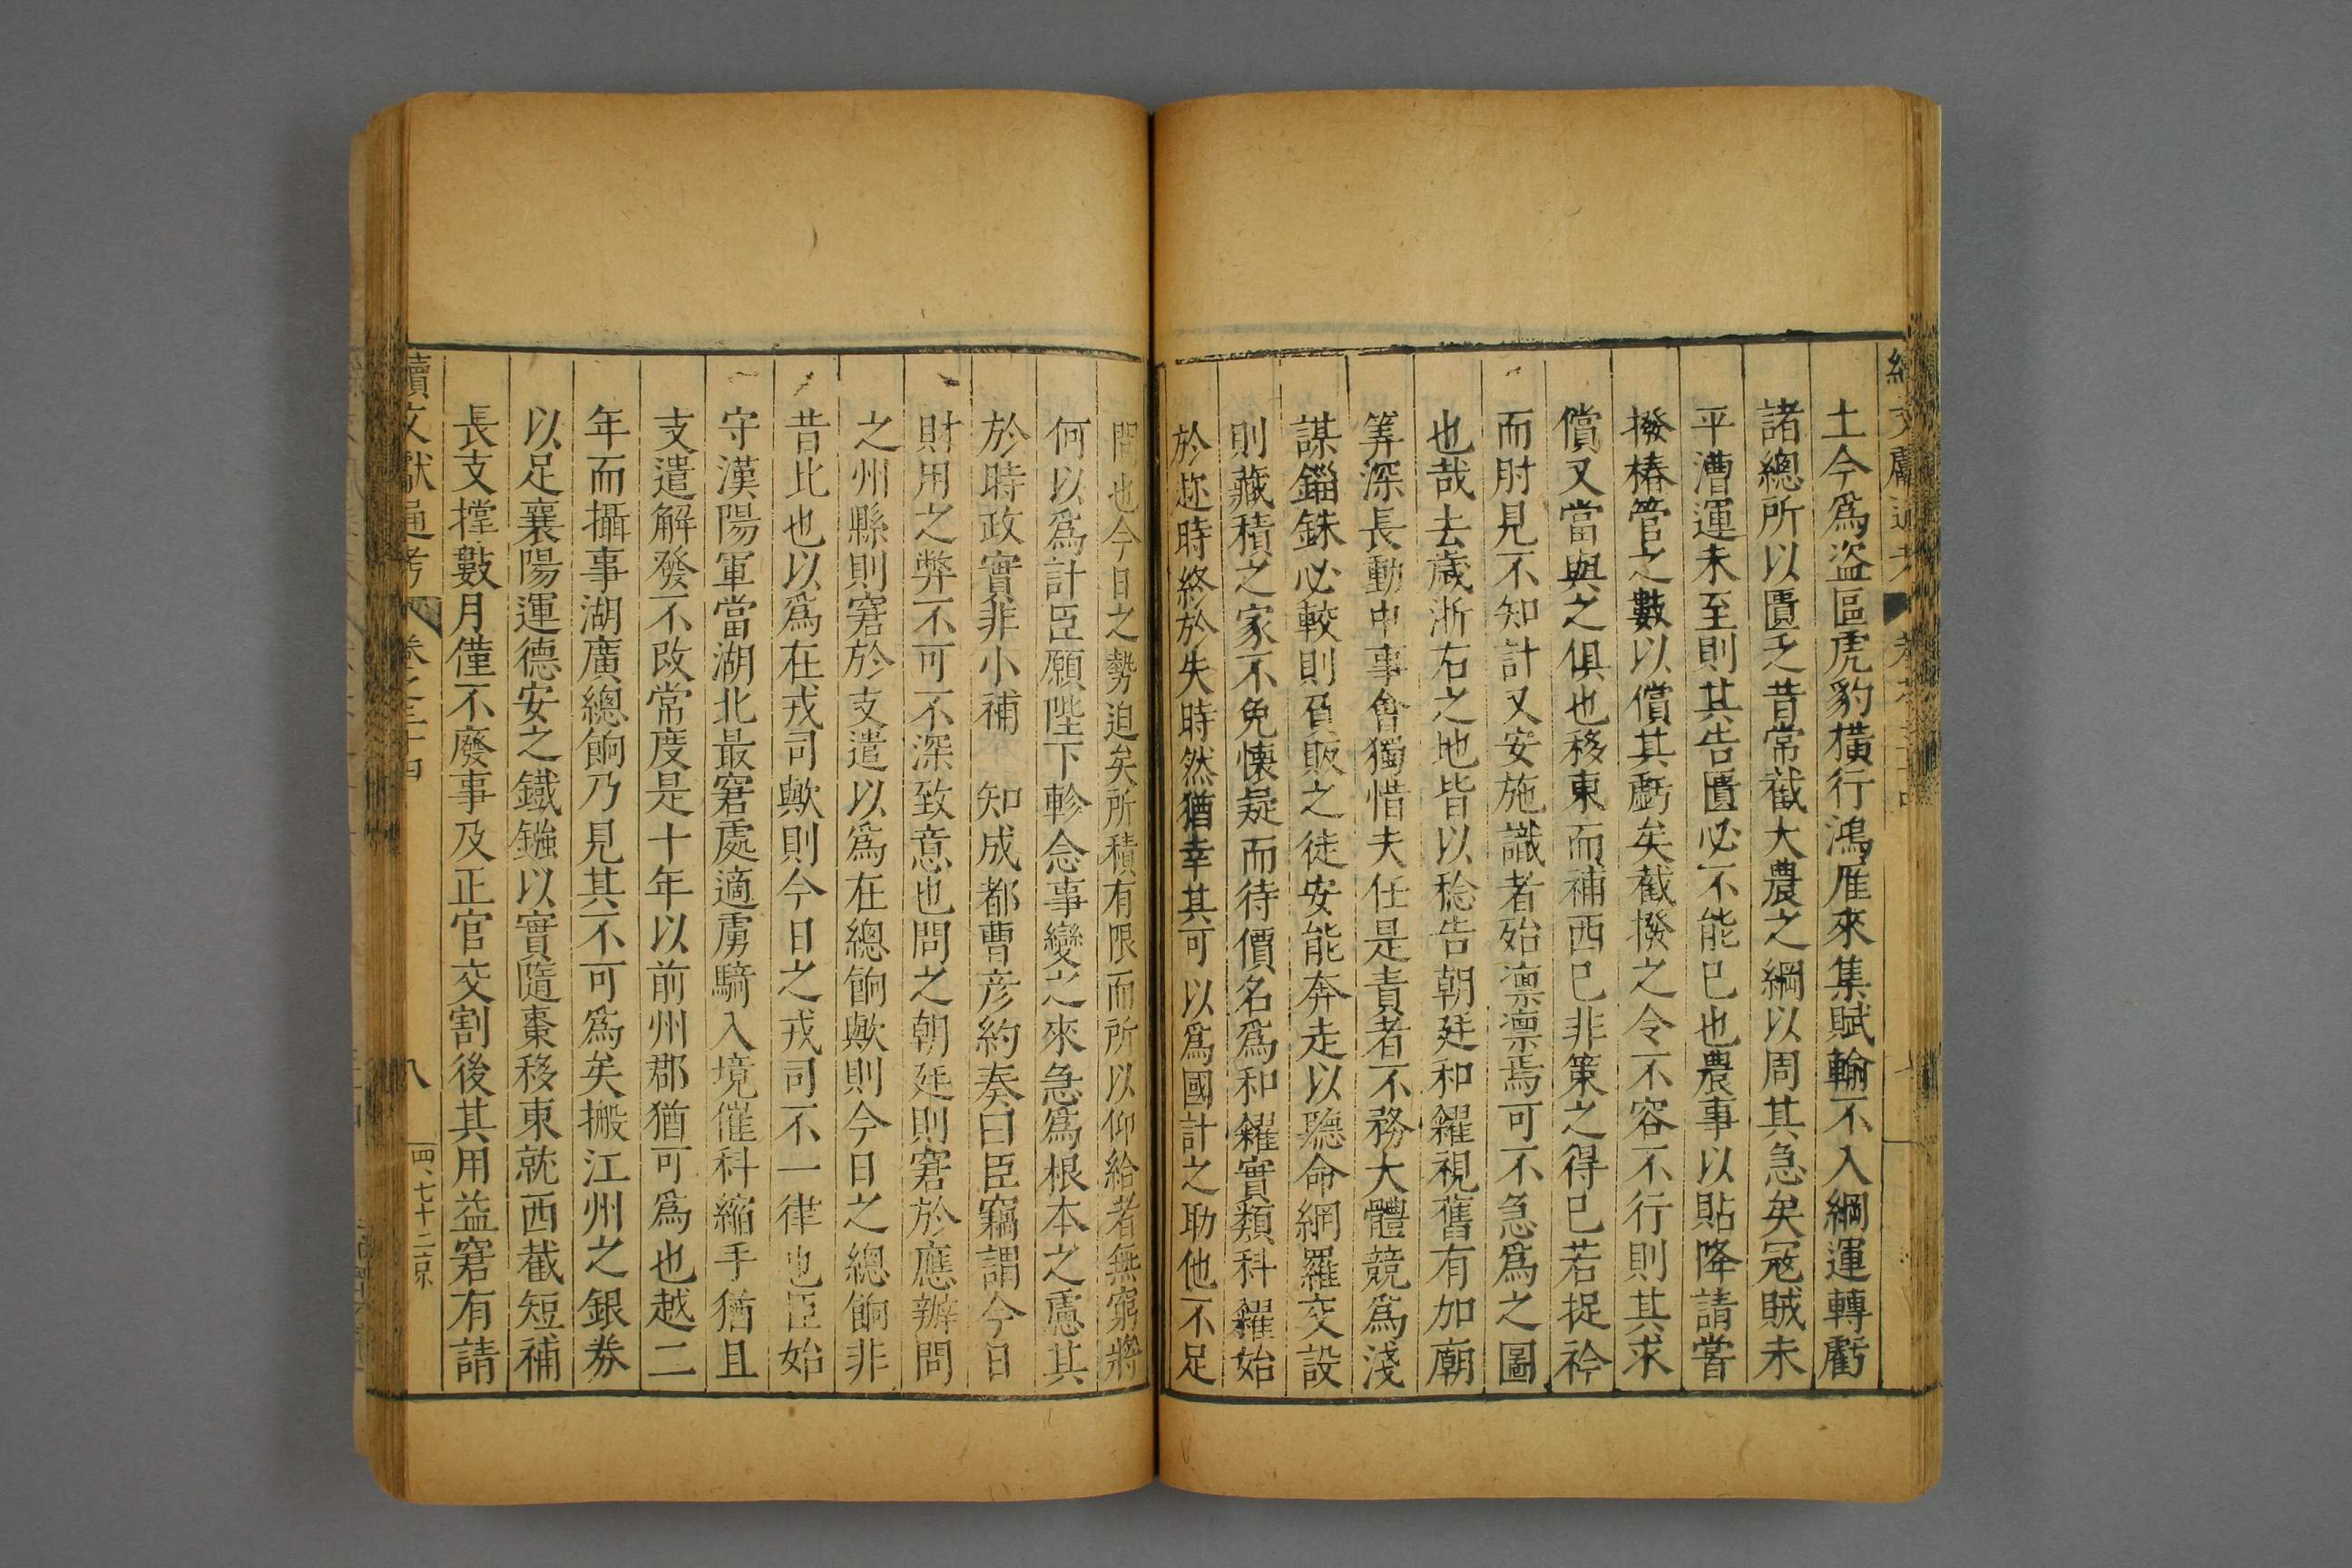 土今爲盜區虎豹橫行鴻雁來集賦輸不入綱運轉虧
諸總所以匱乏昔常截大農之綱以周其急矣冦賊未
平漕運未至則其告匱必不能已也農事以貼降請嘗
撥樁管之數以償其虧矣截撥之令不容不行則其求
償又當與之俱也移東而補西已非策之得已若捉衿
而肘見不知計又安施識者殆凛凛焉可不急爲之圖
也哉去歲浙右之地皆以稔告朝廷和糴視舊有加廟
筭深長動中事會獨惜夫任是責者不務大體競爲淺
謀錙銖必較則負販之徒安能奔走以聽命網羅交設
則藏積之家不免懷疑而待價名爲和糴實類科糴始
於趂時終於失時然猶幸其可以爲國計之助他不足
問也今日之勢迫矣所積有限而所以仰給者無窮將
何以爲計臣願陛下軫念事變之來急爲根本之慮其
於時政實非小補　知成都曹彦約奏曰臣竊謂今日
財用之弊不可不深致意也問之朝廷則窘於應辦問
之州縣則窘於支遣以爲在總餉歟則今日之總餉非
昔比也以爲在戎司歟則今日之戎司不一律也臣始
守漢陽軍當湖北最窘處適虜騎入境催科縮手猶且
支遣解發不改常度是十年以前州郡猶可爲也越二
年而攝事湖廣總餉乃見其不可爲矣搬江州之銀劵
以足襄陽運德安之鐵鏹以實隨棗移東就西截短補
長支撑數月僅不廢事及正官交割後其用益窘有請
續文獻通考　卷之三十四　八　四、七十二　京